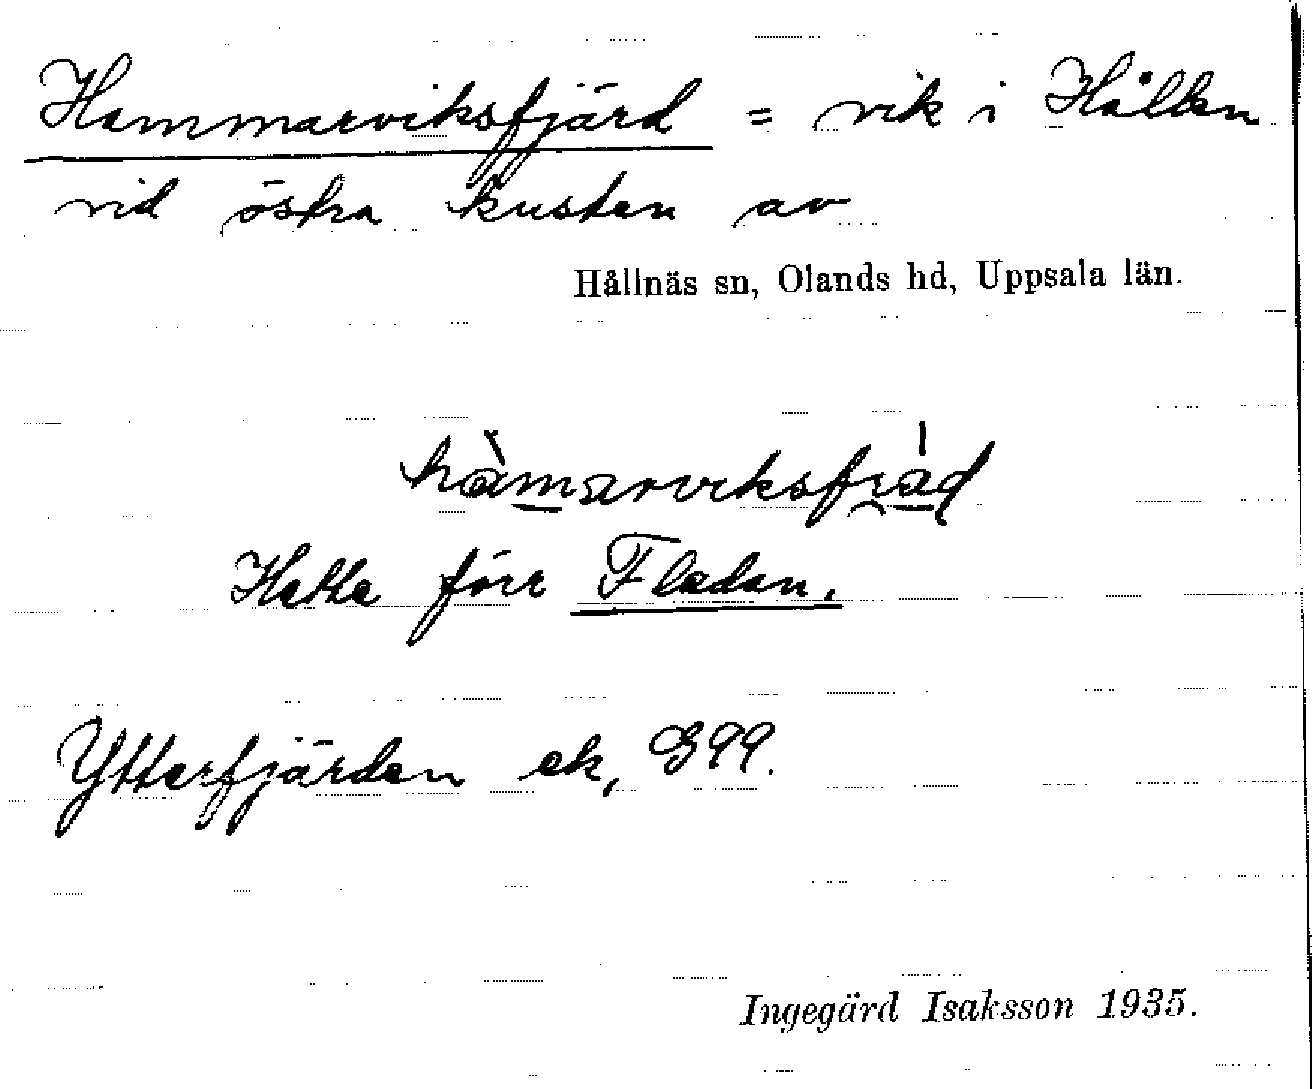 Hammarviksfjärd = vik i Hållen
vid östra kusten av
Hållnäs sn, Olands hd, Uppsala län.
Hette förr Fladan.
Ytterfjärden ek, G99.
Ingegärd Isaksson 1935.